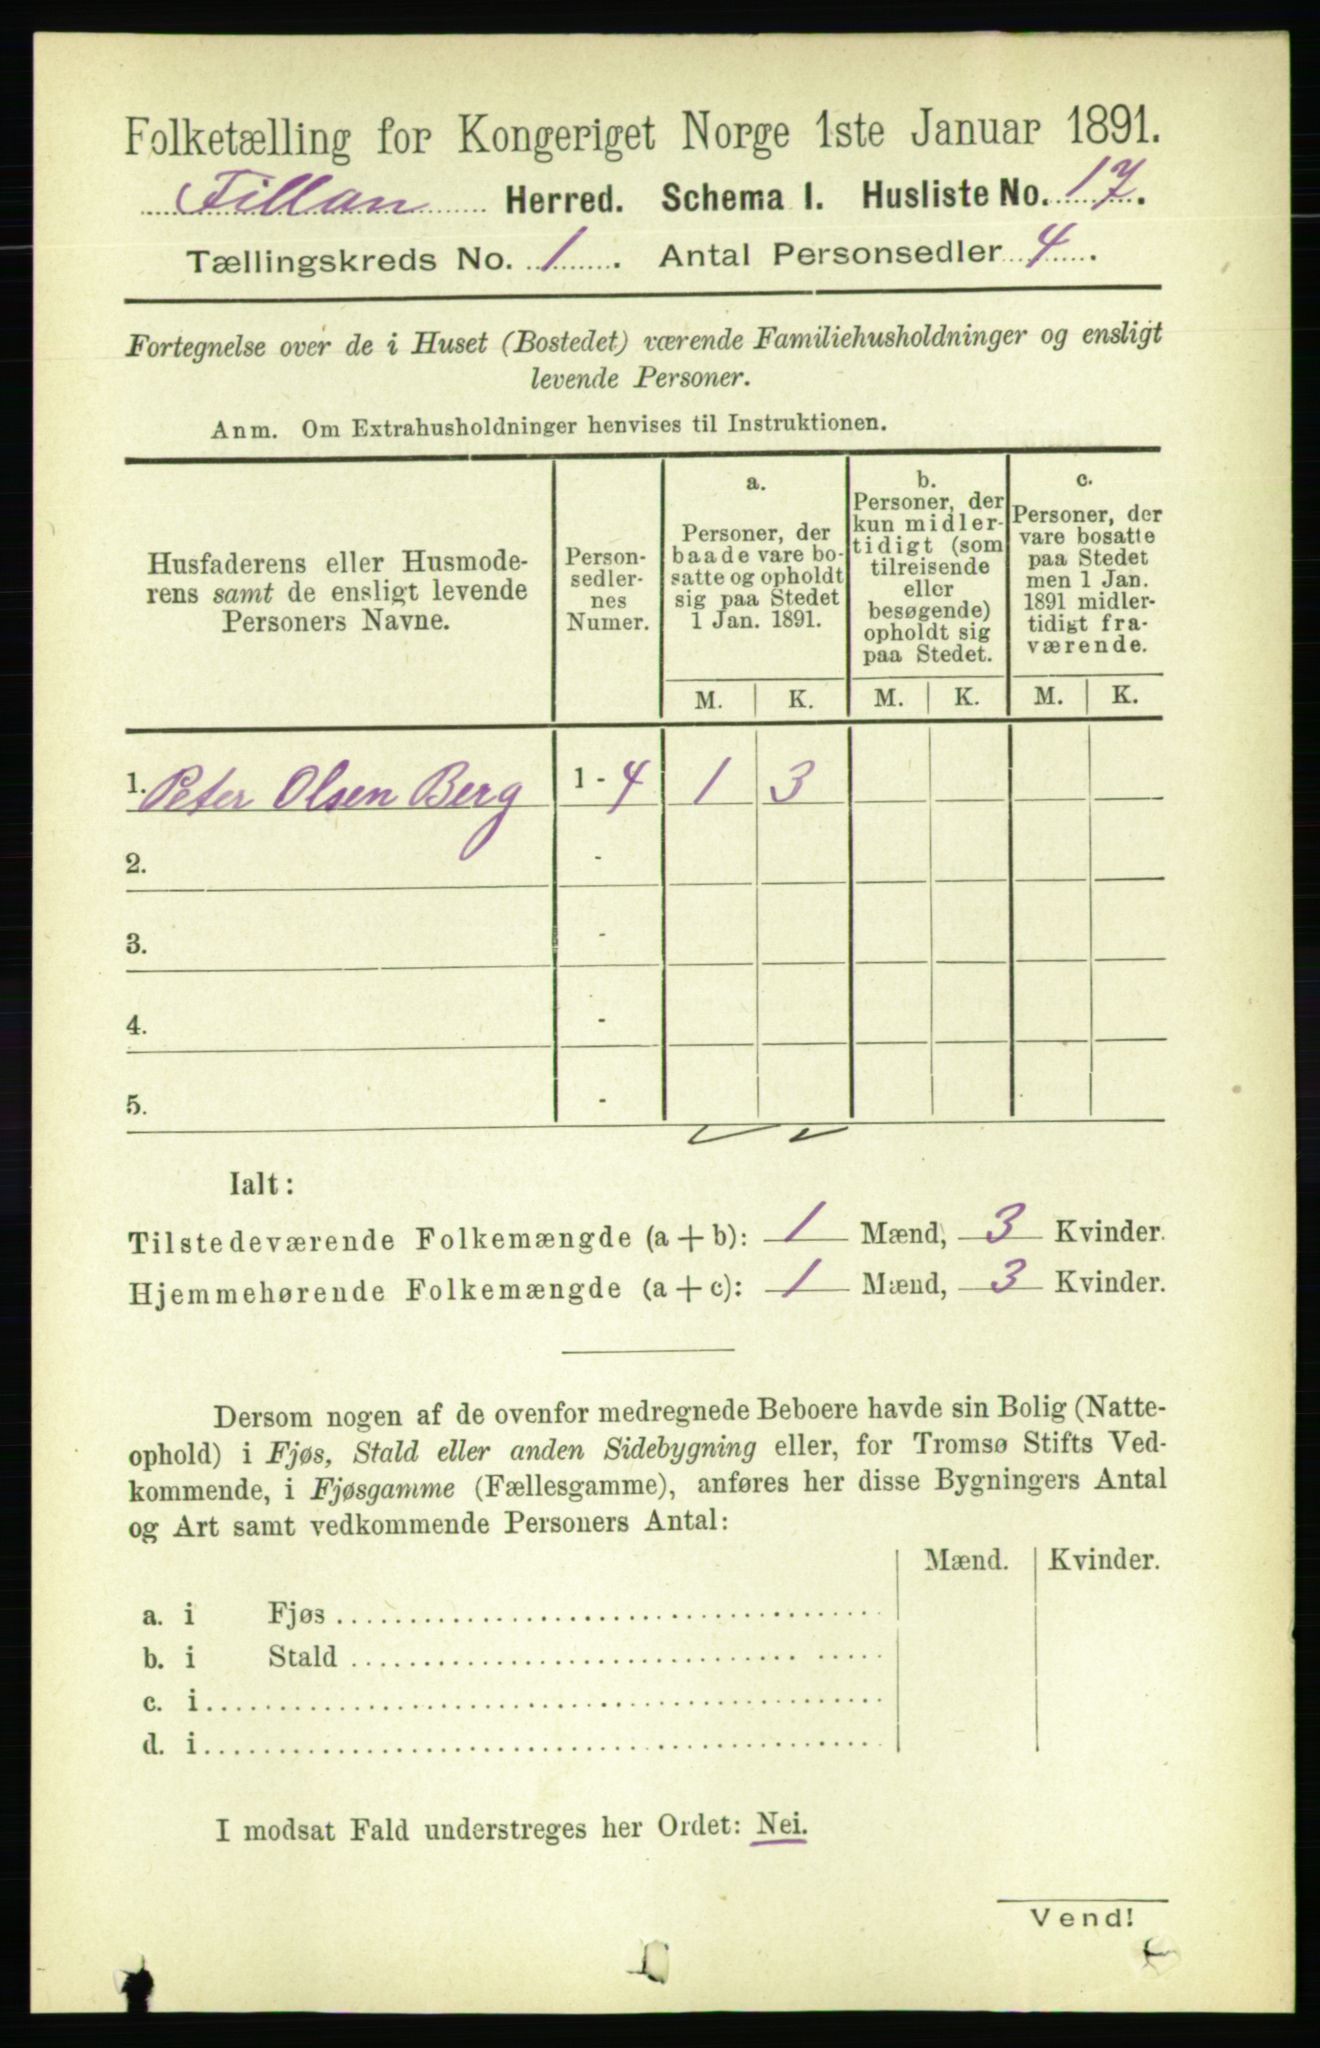 Folketælling for Kongeriget Norge 1ste Januar 1891.
Fillan Herred. Schema I. Husliste No. 17.
Tællingskreds No. 1. Antal Personsedler 4.
Fortegnelse over de i Huset (Bostedet) værende Familiehusholdninger og ensligt
levende Personer.
Anm. Om Extrahusholdninger henvises til Instruktionen.
Husfaderens eller Husmode-
rens samt de ensligt levende
Personers Navne.
Person-
sedler-
nes
Numer.
a.
Personer, der
baade vare bo-
satte og opholdt
sig paa Stedet
1 Jan. 1891.
b.
Personer, der
kun midler-
tidigt (som
tilreisende
eller
besøgende)
opholdt sig
paa Stedet.
c.
Personer, der
vare bosatte
paa Stedet
men 1 Jan.
1891 midler-
tidigt fra-
værende.
M. K. M. K. M. K.
1. Peter Olsen Berg 1 - 4 1 3
2. -
3. -
4. -
5. -
Ialt:
Tilstedeværende Folkemængde (a + b): 1 Mænd, 3 Kvinder.
Hjemmehørende Folkemængde (a + c): 1 Mænd, 3 Kvinder.
Dersom nogen af de ovenfor medregnede Beboere havde sin Bolig (Natte-
ophold) i Fjøs, Stald eller anden Sidebygning eller, for Tromsø Stifts Ved-
kommende, i Fjøsgamme (Fællesgamme), anføres her disse Bygningers Antal
og Art samt vedkommende Personers Antal:
Mænd. Kvinder.
a. i Fjøs
b. i Stald
c. i
d. i
I modsat Fald understreges her Ordet: Nei.
Vend!